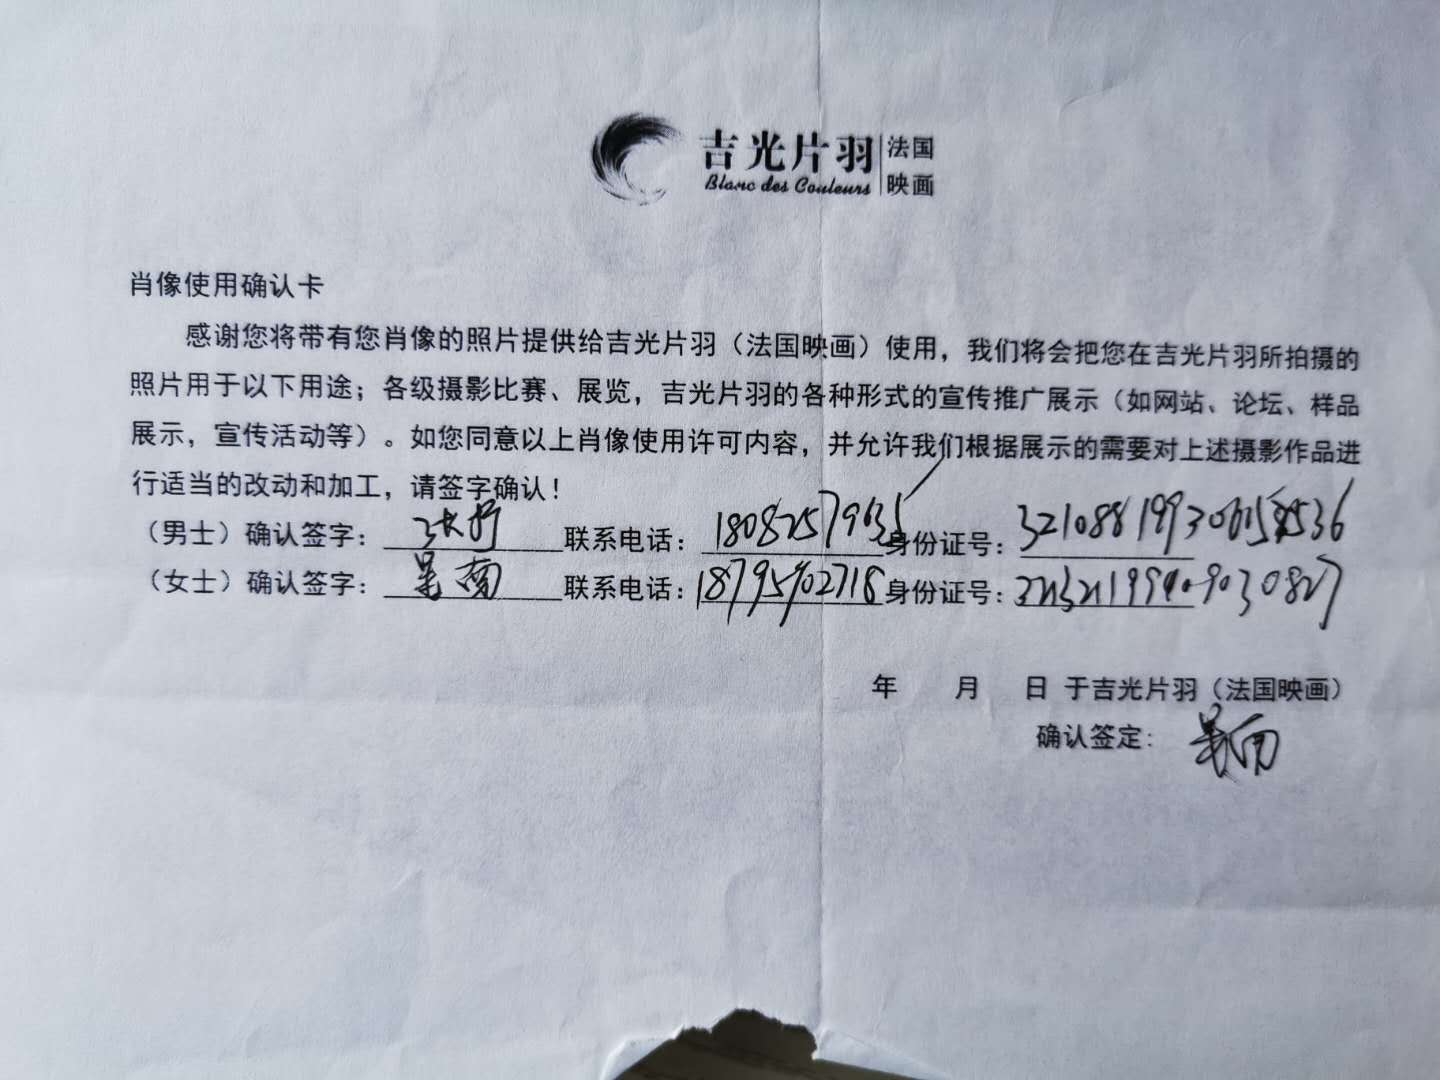 吉光片羽 法国
Blanc des Couleurs 映画
肖像使用确认卡
感谢您将带有您肖像的照片提供给吉光片羽（法国映画）使用，我们将会把您在吉光片羽所拍摄的
照片用于以下用途；各级摄影比赛、展览，吉光片羽的各种形式的宣传推广展示（如网站、论坛、样品
展示，宣传活动等）。如您同意以上肖像使用许可内容，并允许我们根据展示的需要对上述摄影作品进
行适当的改动和加工，请签字确认！
（男士）确认签字： 联系电话：18082579635 身份证号：
（女士）确认签字：吴南 联系电话：18795902718 身份证号：
年 月 日 于吉光片羽（法国映画）
确认签定：吴南